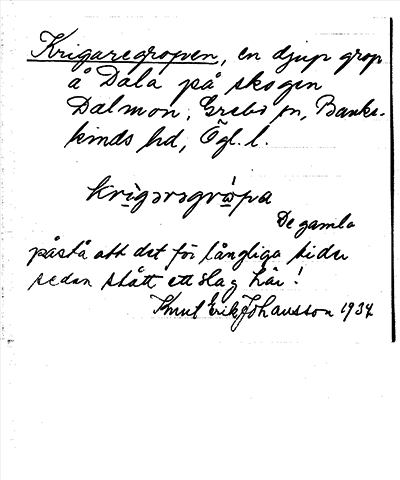 Krigaregropen, en djup grop
å Dala på skogen
Dalmon, Grebo sn, Banke-
kinds hd, Ögl. l.
krigərəgrωpa
De gamla
påstå att det för långliga tider
sedan stått ett slag här!
Knut Erik Johansson 1934